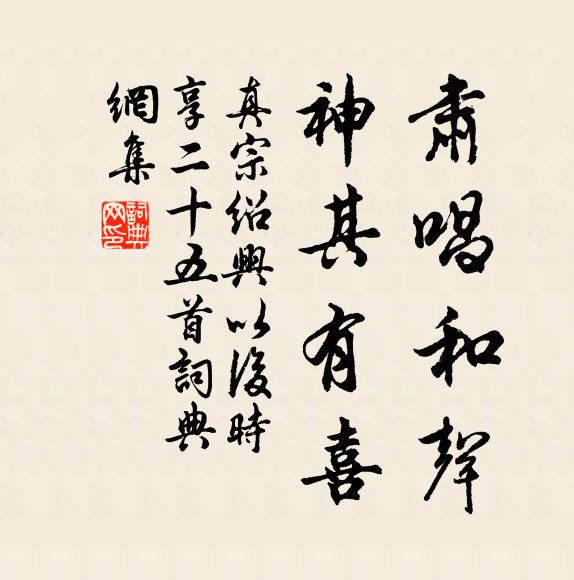 肅唱和聲
神其有喜
真宗紹興以後時
享二十五首詞典
網集
詞典網印